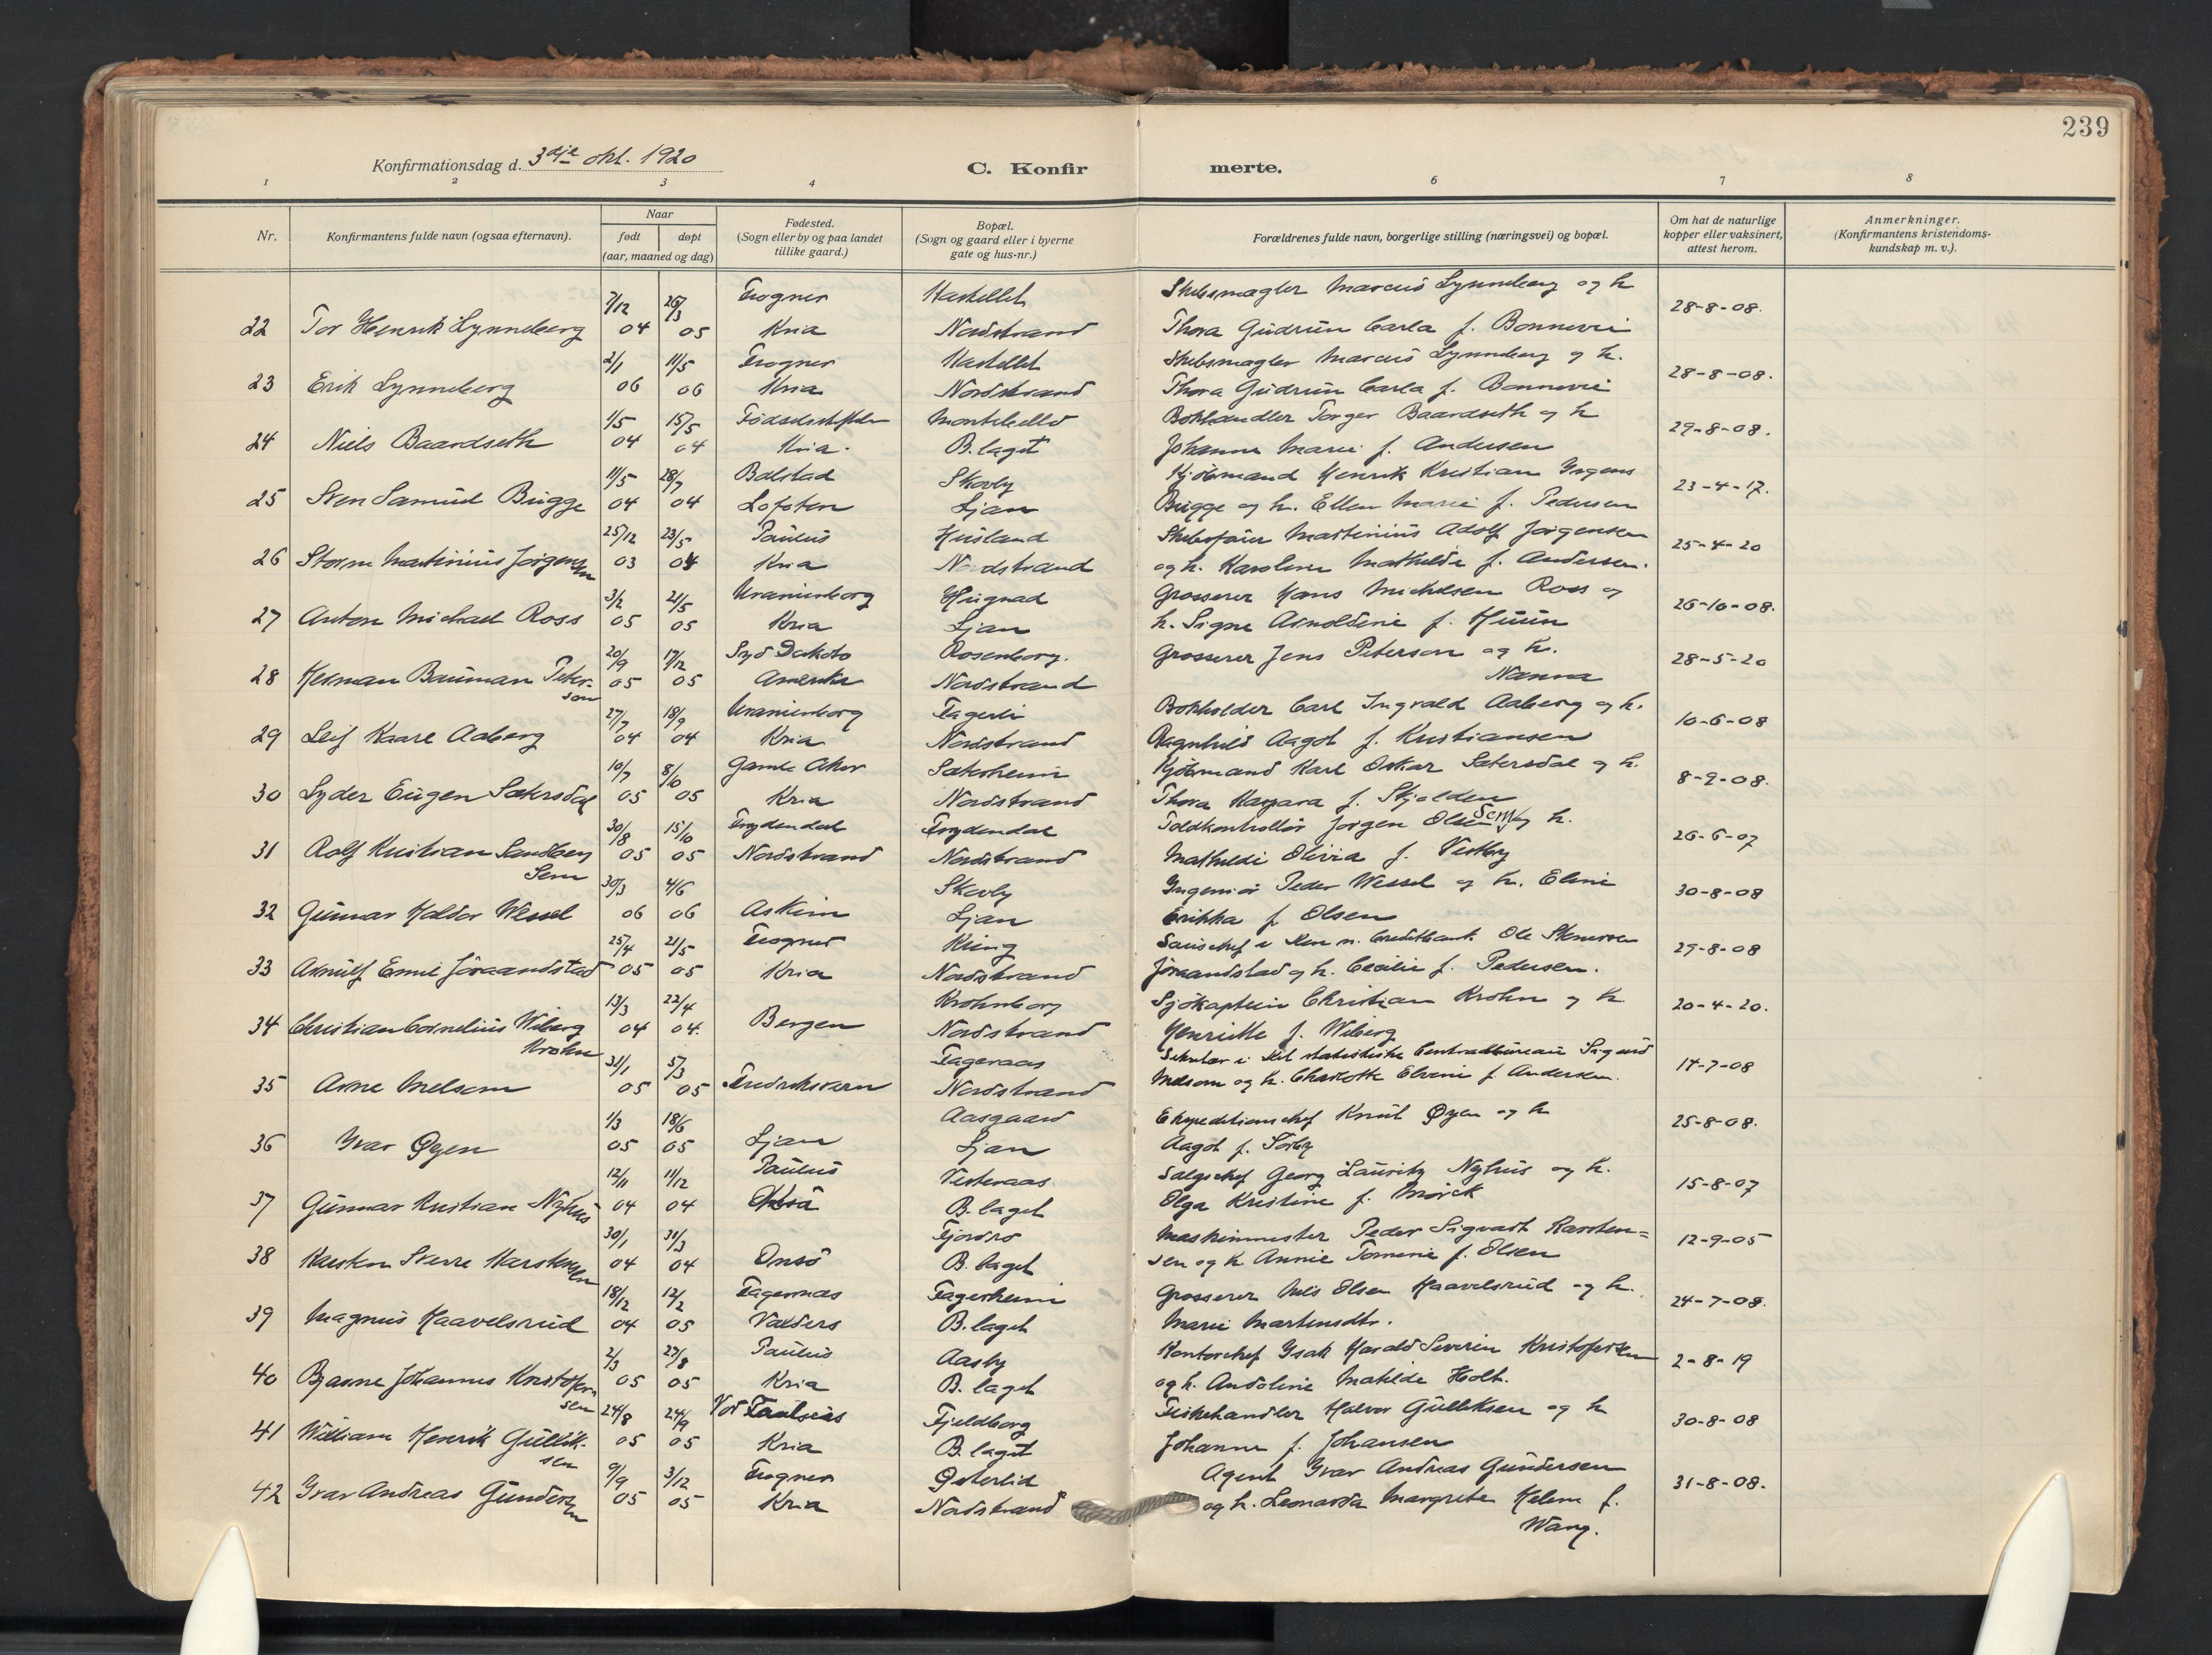 239
Konfirmationsdag d. 3dje okt. 1920
C. Konfirmerte.
1 2 3 4 6 7 8
Nr. Konfirmantens fulde navn (ogsaa efternavn). Naar født døpt (aar, maaned og dag) Fødested. (Sogn eller by og paa landet tillike gaard.) Bopæl. (Sogn og gaard eller i byerne gate og hus-nr.) Forældrenes fulde navn, borgerlige stilling (næringsvei) og bopæl. Om hat de naturlige kopper eller vaksinert, attest herom. Anmerkninger. (Konfirmantens kristendomskundskap m. v.).
7/12 26/3 Frogner Kastellet Skibsmægler Marcus Lynneberg og h
22 Tor Henrik Lynneberg 04 05 Kria Nordstrand Thora Gudrun Carla f. Bonnevie 28-8-08.
2/1 11/5 Frogner Kastellet Skibsmægler Marcus Lynneberg og h.
23 Erik Lynneberg 06 06 Kria Nordstrand Thora Gudrun Carla f. Bonnevie 28-8-08.
1/5 15/5 Montebello Bokhandler Torger Baardseth og h
24 Niels Baardseth 04 04 Kria. B.laget Johanne Marie f. Andersen 29-8-08.
11/5 28/7 Balstad Skovly Kjøbmand Henrik Kristian Irgens
25 Sven Samuel Brügge 04 04 Lofoten Ljan Brügge og h. Ellen Marie f. Pedersen 23-4-17.
25/12 23/5 Paulus Husland Skibsfører Martinius Adolf Jørgensen
26 Storm Martinius Jørgensen 03 04 Kria Nordstrand og h. Karoline Mathilde f. Andersen. 25-4-20
3/2 21/5 Uranienborg Grosserer Hans Michelsen Ross og
27 Anton Michael Ross 05 05 Kria Ljan h. Signe Arnoldine f. Huun 26-10-08.
20/9 17/12 Syd Dakota Rosenborg. Grosserer Jens Peterson og h.
28 Herman Bauman Peterson 05 05 Amerika Nordstrand Nanna 28-5-20
27/7 18/9 Uranienborg Fagerli Bokholder Carl Ingvald Aaberg og h.
29 Leif Kaare Aaberg 04 04 Kria Nordstrand Ragnhild Aagot f. Kristiansen 10-6-08
10/7 8/10 Gamle Aker Sæterheim Kjøbmand Karl Oskar Sætersdal og h.
30 Lyder Eugen Sætersdal 05 05 Kria Nordstrand Thora Kaspara f. Skjolden 8-9-08.
30/8 15/10 Frydendal Frydendal Toldkontrollør Jørgen Olsen Sem og h.
31 Rolf Kristian Sandberg Sem 05 05 Nordstrand Nordstrand Mathilde Olivia f. Vestby 26-6-07
30/3 4/6 Skovly Ingeniør Peder Wessel og h. Eline
32 Gunnar Haldor Wessel 06 06 Askim Ljan Erikka f. Olsen 30-8-08
25/4 21/5 Frogner Kring Ole
33 Arnulf Emil Jøraandstad 05 05 Kria Nordstrand Jøraandstad og h. Cecilie f. Pedersen. 29-8-08
13/3 22/4 Krohnborg Sjøkaptein Christian Krohn og h
34 Christian Cornelius Wiberg Krohn 04 04. Bergen Nordstrand Henriette f. Wiberg 20-4-20.
31/1 5/3 Fageraas Sekretær i det statistiske Centralbureau Sigurd
35 Arne Melsom 05 05 Fredriksværn Nordstrand Melsom og h. Charlotte Elvine f. Andersen. 14-7-08
1/3 18/6 Aasgaard Ekspeditionschef Knut Øyen og h
36 Ivar Øyen 05 05 Ljan Ljan Aagot f. Sørby 25-8-08.
12/11 11/12 Paulus Vesteraas. Salgschef Georg Lauritz Nyhus og h.
37 Gunnar Kristian Nyhus 04 04 Kria B.laget Olga Kristine f. Mørck 15-8-07
30/1 31/3 Fjordro Maskinmester Peder Sigvart Karsten=
38 Karsten Sverre Karstensen 04 04 Onsø B.laget sen og h. Annie Tomine f. Olsen 12-9-05
18/12 12/2 Fagernæs Fagerheim Grosserer Nils Olsen Haavelsrud og h.
39 Magnus Haavelsrud 04 05 Valders B.laget Marie Martensdtr. 24-7-08.
2/3 27/8 Paulus Aasby Kontorchef Isak Harald Severin Kristofersen
40 Bjarne Johannes Kristofersen 05 05 Kria B.laget og h. Andoline Matilde Holt. 2-8-19
24/8 24/9 Vor Frelsers Fjeldborg Fiskehandler Halvor Gulliksen og h
41 William Henrik Gulliksen 05 05 Kria B.laget Johanne f. Johansen 30-8-08
9/9 3/12 Frogner Østerlid Agent Ivar Andreas Gundersen
42 Ivar Andreas Gundersen 05 05 Kria Nordstrand og h. Leonarda Margrete Helene f. 31-8-08.
Wang.